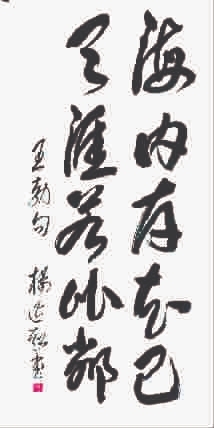 海内存知己
天涯若比邻
王勃句